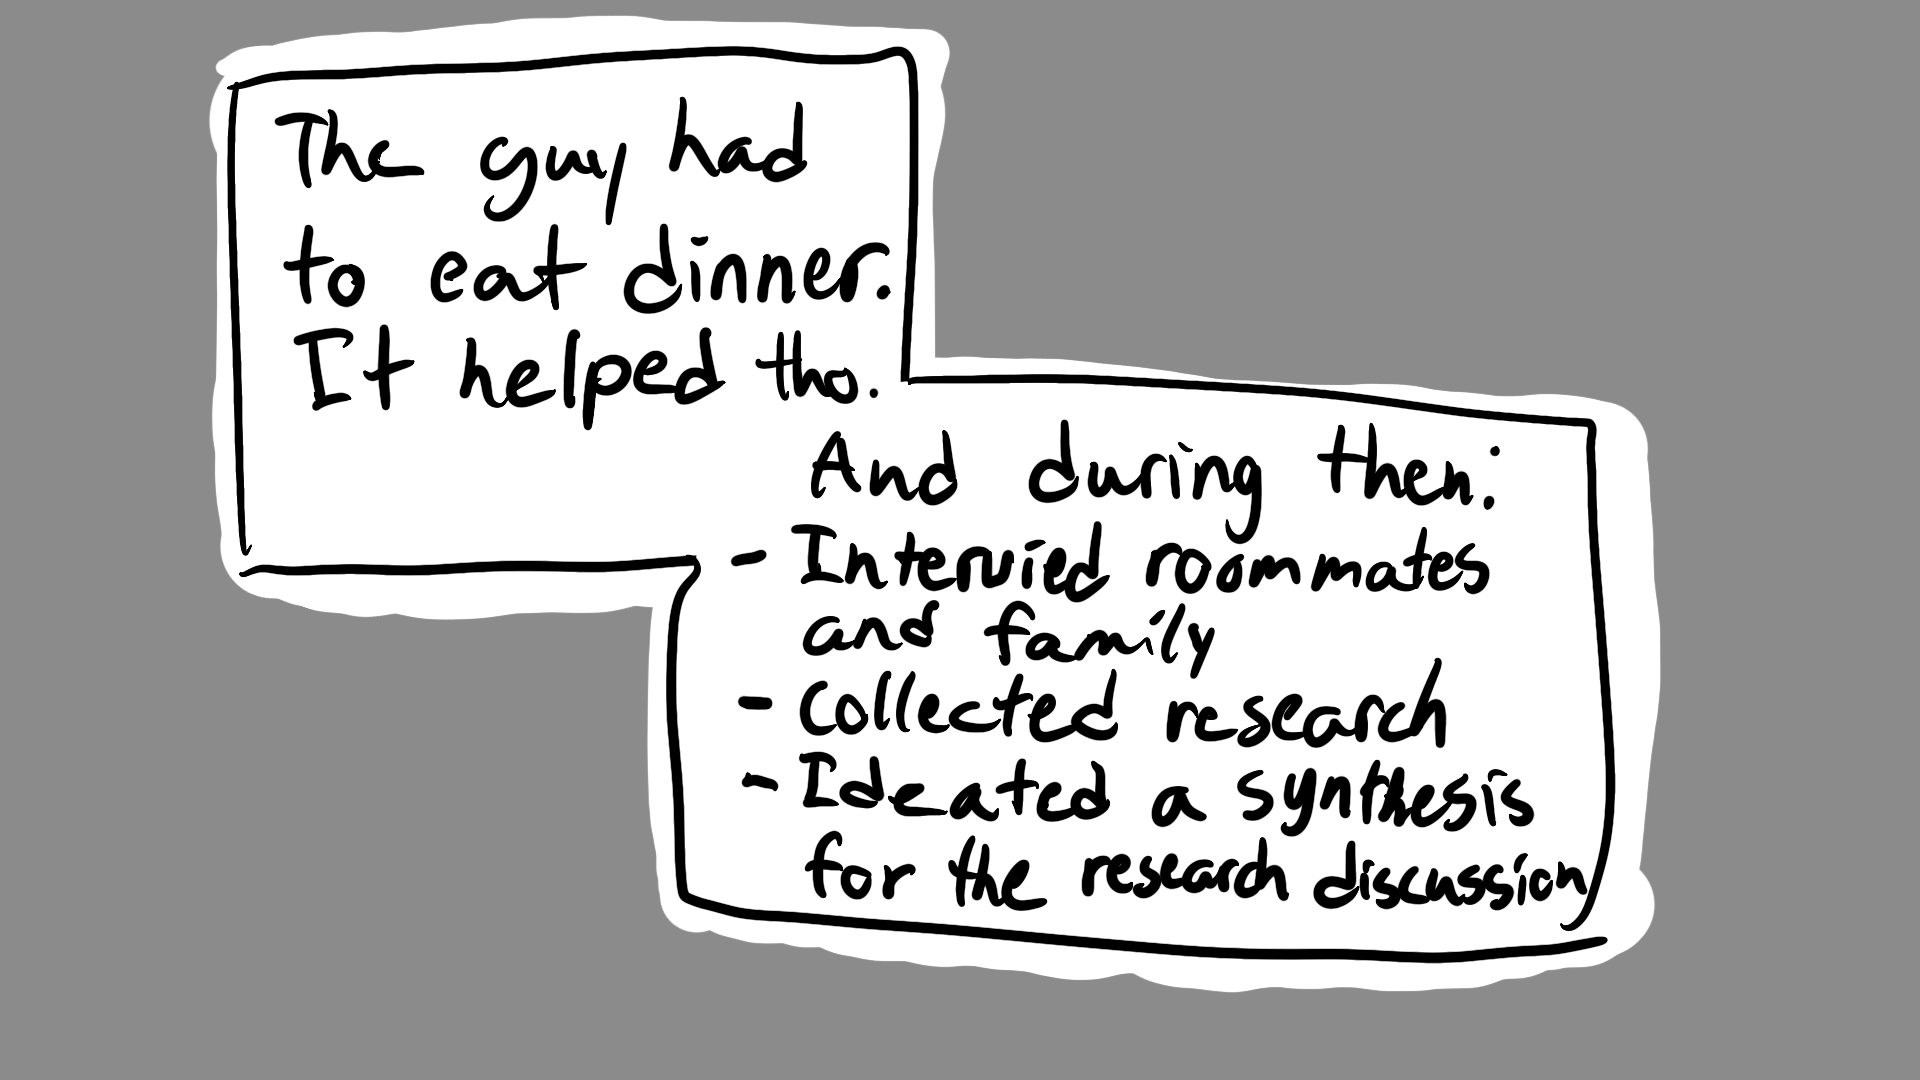 The guy had
to eat dinner.
It helped tho.
And during then:
- Intervied roommates
and family
- Collected research
- Ideated a synthesis
for the research discussion